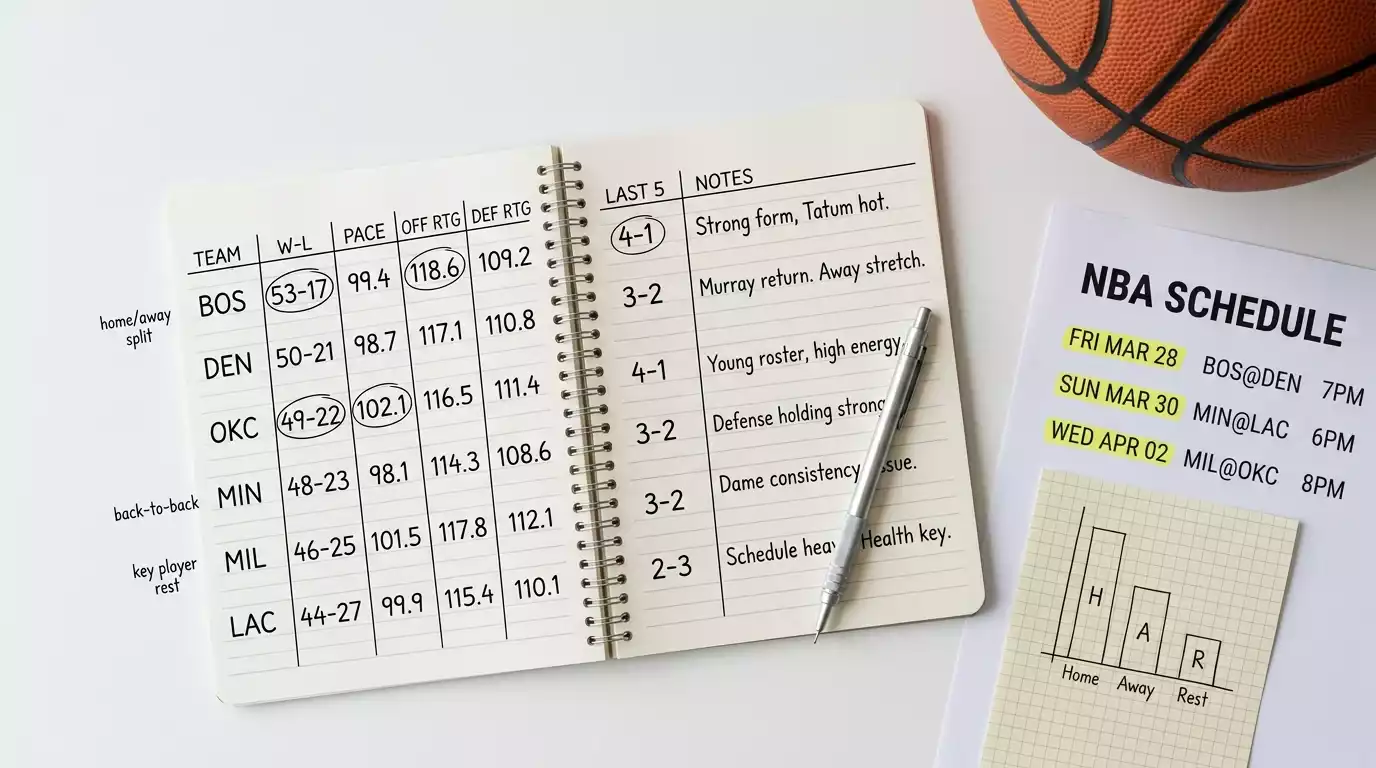 TEAM W-L PACE OFF RTG DEF RTG
BOS 53-17 99.4 118.6 109.2
DEN 50-21 98.7 117.1 110.8
OKC 49-22 102.1 116.5 111.4
MIN 48-23 98.1 114.3 108.6
MIL 46-25 101.5 117.8 112.1
LAC 44-27 99.9 115.4 110.1
home/away
split
back-to-back
key player
rest
LAST 5 NOTES
4-1 Strong form, Tatum hot.
3-2 Murray return. Away stretch.
4-1 Young roster, high energy
3-2 Defense holding strong
3-2 Dame consistency
2-3 Schedule Health key.
NBA SCHEDULE
FRI MAR 28 BOS@DEN 7PM
SUN MAR 30 MIN@LAC 6PM
WED APR 02 MIL@OKC 8PM
H A R
Home Away Rest